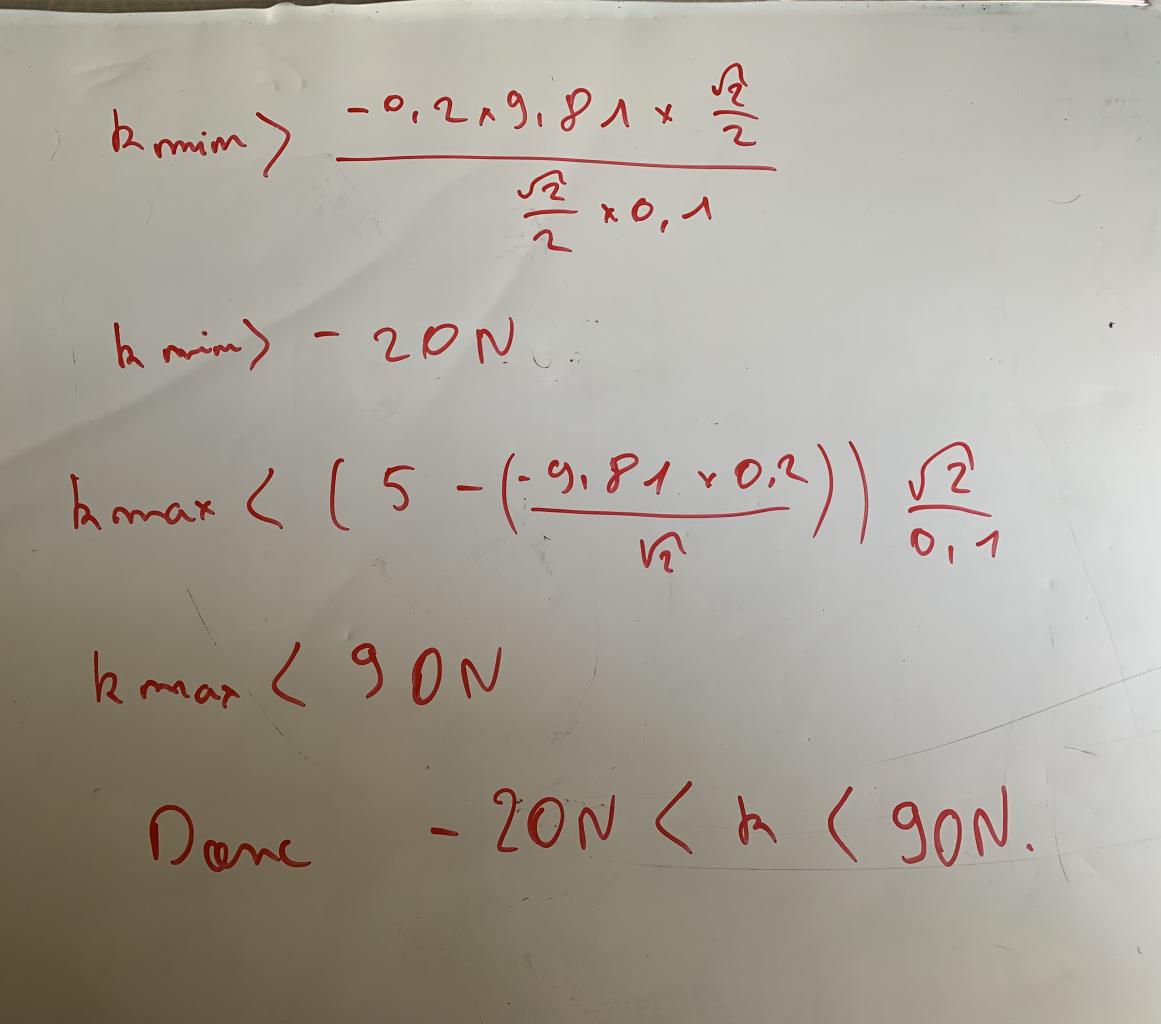 k min > (-0,2 × 9,81 × √2/2) / (√2/2 × 0,1)
k min > - 20N
k max < (5 - (-9,81 × 0,2 / √2)) √2/0,1
k max < 90N
Donc - 20N < k < 90N.